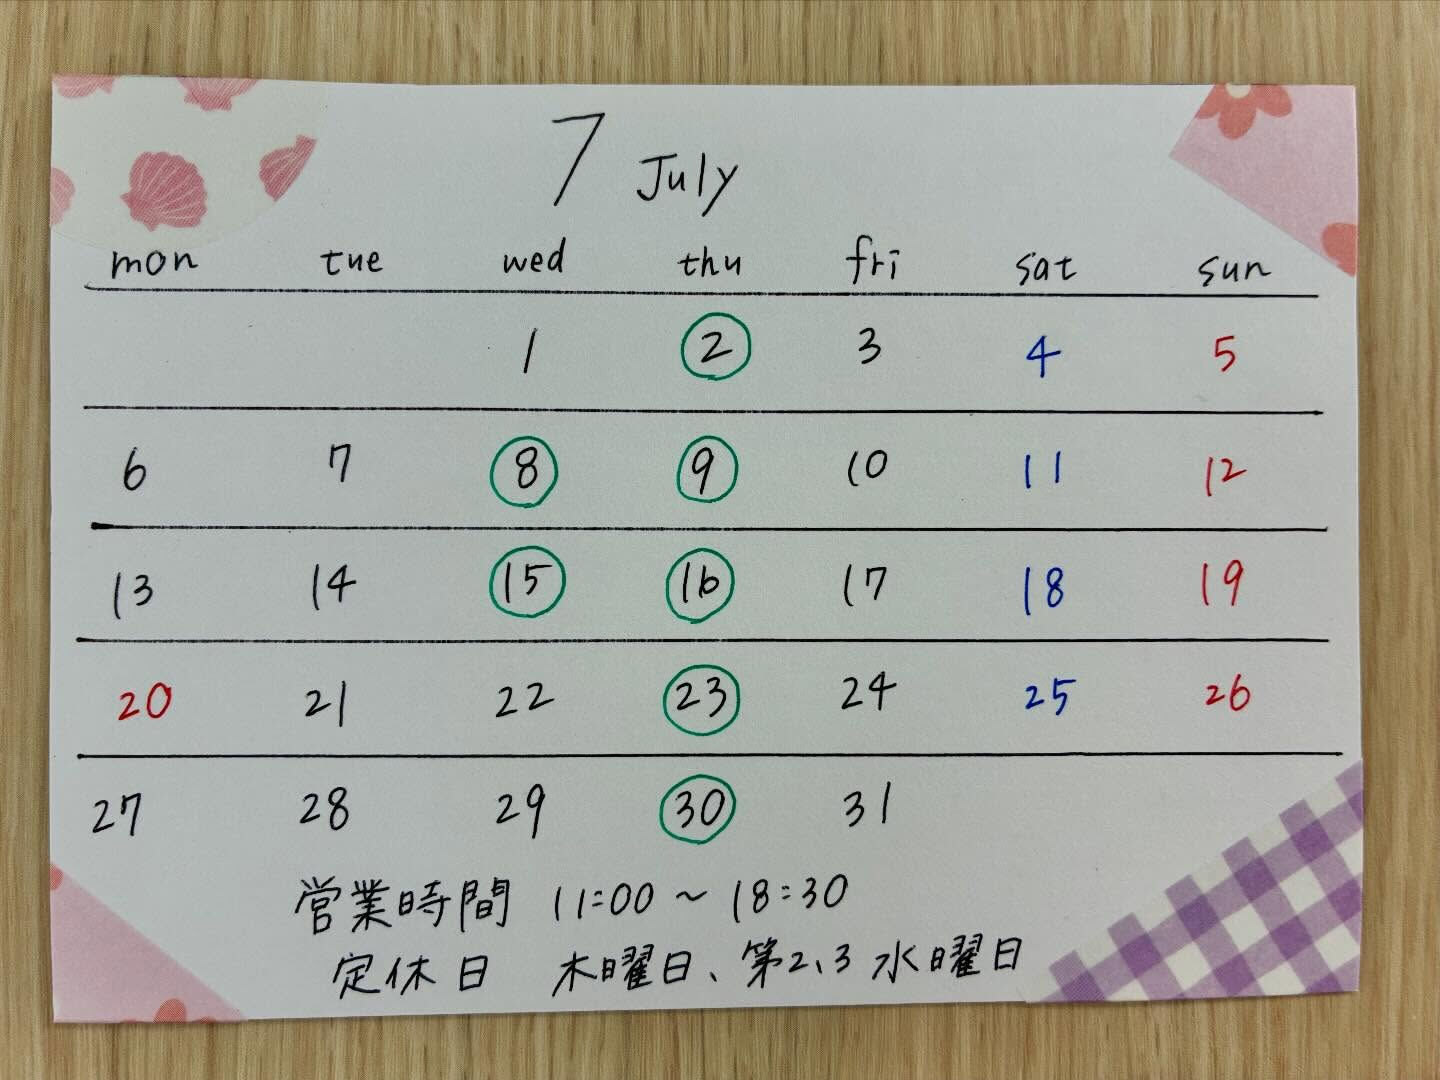 7 July
mon tue wed thu fri sat sun
1 2 3 4 5
6 7 8 9 10 11 12
13 14 15 16 17 18 19
20 21 22 23 24 25 26
27 28 29 30 31
営業時間 11:00～18:30
定休日 木曜日、第2、3 水曜日